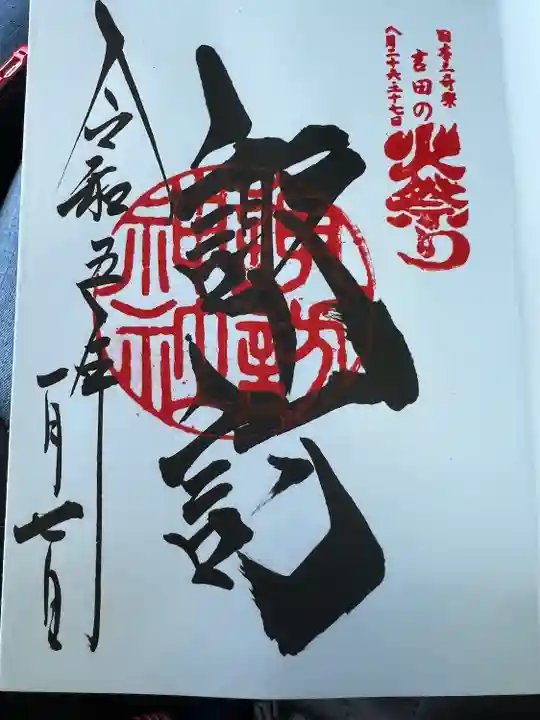 日本三奇祭
吉田の
火祭り
八月二十六・二十七日
諏訪
諏訪神社
令和五年
一月七日